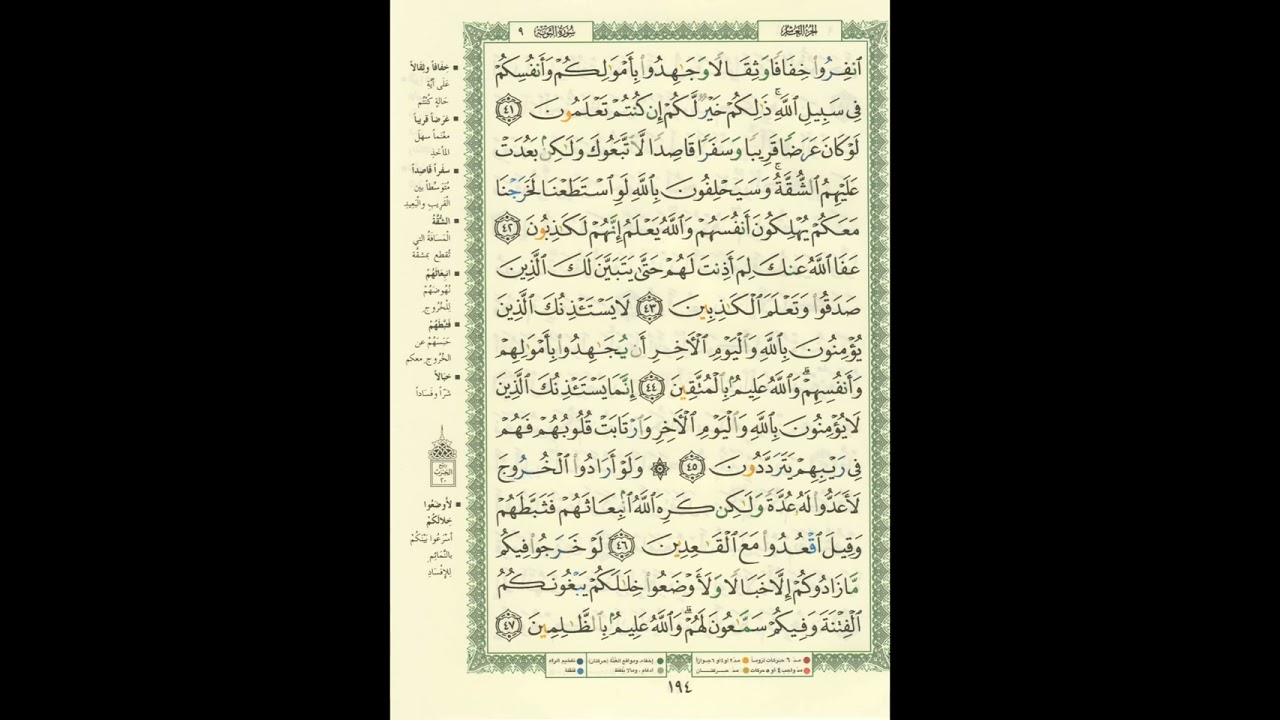 الجزء العاشر
سورة التوبة ٩
ٱنفِرُوا۟ خِفَافًا وَثِقَالًا وَجَٰهِدُوا۟ بِأَمْوَٰلِكُمْ وَأَنفُسِكُمْ
فِى سَبِيلِ ٱللَّهِ ۚ ذَٰلِكُمْ خَيْرٌ لَّكُمْ إِن كُنتُمْ تَعْلَمُونَ ٤١
لَوْ كَانَ عَرَضًا قَرِيبًا وَسَفَرًا قَاصِدًا لَّٱتَّبَعُوكَ وَلَٰكِنۢ بَعُدَتْ
عَلَيْهِمُ ٱلشُّقَّةُ ۚ وَسَيَحْلِفُونَ بِٱللَّهِ لَوِ ٱسْتَطَعْنَا لَخَرَجْنَا
مَعَكُمْ يُهْلِكُونَ أَنفُسَهُمْ وَٱللَّهُ يَعْلَمُ إِنَّهُمْ لَكَٰذِبُونَ ٤٢
عَفَا ٱللَّهُ عَنكَ لِمَ أَذِنتَ لَهُمْ حَتَّىٰ يَتَبَيَّنَ لَكَ ٱلَّذِينَ
صَدَقُوا۟ وَتَعْلَمَ ٱلْكَٰذِبِينَ ٤٣ لَا يَسْتَـْٔذِنُكَ ٱلَّذِينَ
يُؤْمِنُونَ بِٱللَّهِ وَٱلْيَوْمِ ٱلْـَٔاخِرِ أَن يُجَٰهِدُوا۟ بِأَمْوَٰلِهِمْ
وَأَنفُسِهِمْ ۗ وَٱللَّهُ عَلِيمٌۢ بِٱلْمُتَّقِينَ ٤٤ إِنَّمَا يَسْتَـْٔذِنُكَ ٱلَّذِينَ
لَا يُؤْمِنُونَ بِٱللَّهِ وَٱلْيَوْمِ ٱلْـَٔاخِرِ وَٱرْتَابَتْ قُلُوبُهُمْ فَهُمْ
فِى رَيْبِهِمْ يَتَرَدَّدُونَ ٤٥ ۞ وَلَوْ أَرَادُوا۟ ٱلْخُرُوجَ
لَأَعَدُّوا۟ لَهُۥ عُدَّةً وَلَٰكِن كَرِهَ ٱللَّهُ ٱنۢبِعَاثَهُمْ فَثَبَّطَهُمْ
وَقِيلَ ٱقْعُدُوا۟ مَعَ ٱلْقَٰعِدِينَ ٤٦ لَوْ خَرَجُوا۟ فِيكُم
مَّا زَادُوكُمْ إِلَّا خَبَالًا وَلَأَوْضَعُوا۟ خِلَٰلَكُمْ يَبْغُونَكُمُ
ٱلْفِتْنَةَ وَفِيكُمْ سَمَّٰعُونَ لَهُمْ ۗ وَٱللَّهُ عَلِيمٌۢ بِٱلظَّٰلِمِينَ ٤٧
خِفَافاً وثِقَالاً
عَلَى أَيَّةِ
حَالَةٍ كُنْتُم
عَرَضاً قَرِيباً
مَغْنَماً سهلَ
المأخذِ
سَفَراً قَاصِداً
مُتَوَسِّطاً بين
القَرِيبِ والبَعِيدِ
الشُّقَّةُ
المَسَافَةُ التي
تُقطع بمشقَّة
انبِعَاثَهُمْ
نُهُوضَهُمْ
لِلْخُرُوجِ
فَثَبَّطَهُمْ
حَبَسَهُمْ عن
الخُرُوجِ معكم
خَبَالاً
شَرّاً وفَسَاداً
ربع
الحزب
٢٠
لأوضَعُوا
خِلالَكُمْ
أسْرَعُوا بَيْنَكُمْ
بالنَّمَائِمِ
لِلإفْسَادِ
مدّ ٦ حركات لزوماً مدّ ٢ أو ٤ أو ٦ جوازاً
مدّ واجب ٤ أو ٥ حركات مدّ حركتان
إخفاء، ومواقع الغُنَّة (حركتان) تفخيم الراء
ادغام، وما لا يُلفَظ قلقلة
١٩٤